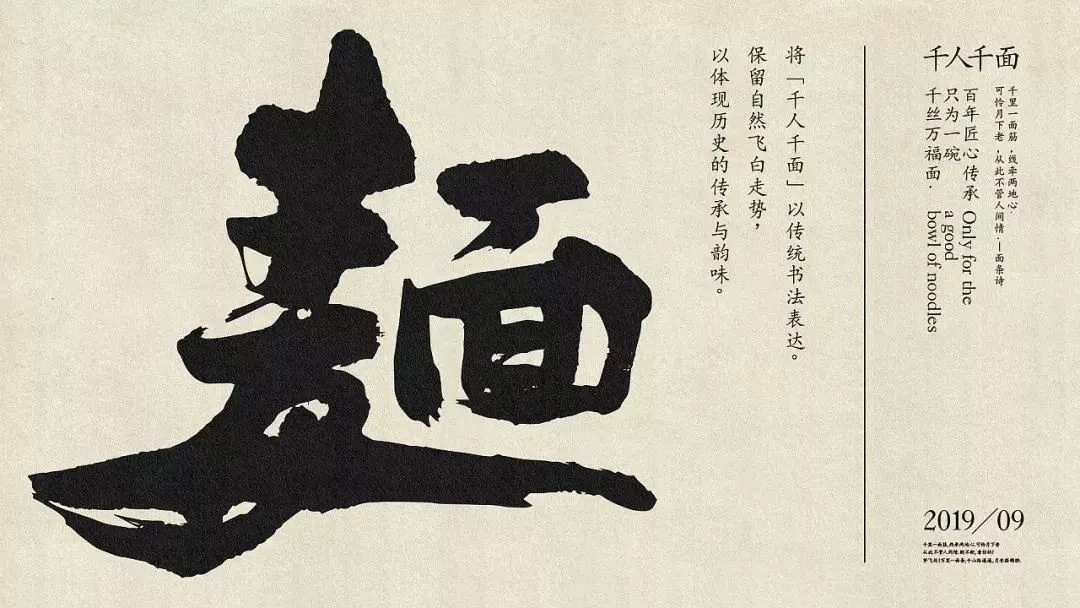 麵
将「千人千面」以传统书法表达。
保留自然飞白走势，
以体现历史的传承与韵味。
千人千面
千里一面筋，线牵两地心.
可怜月下老，从此不管人间情.—面条诗
百年匠心传承
只为一碗
千丝万福面.
Only for the
a good
bowl of noodles
2019/09